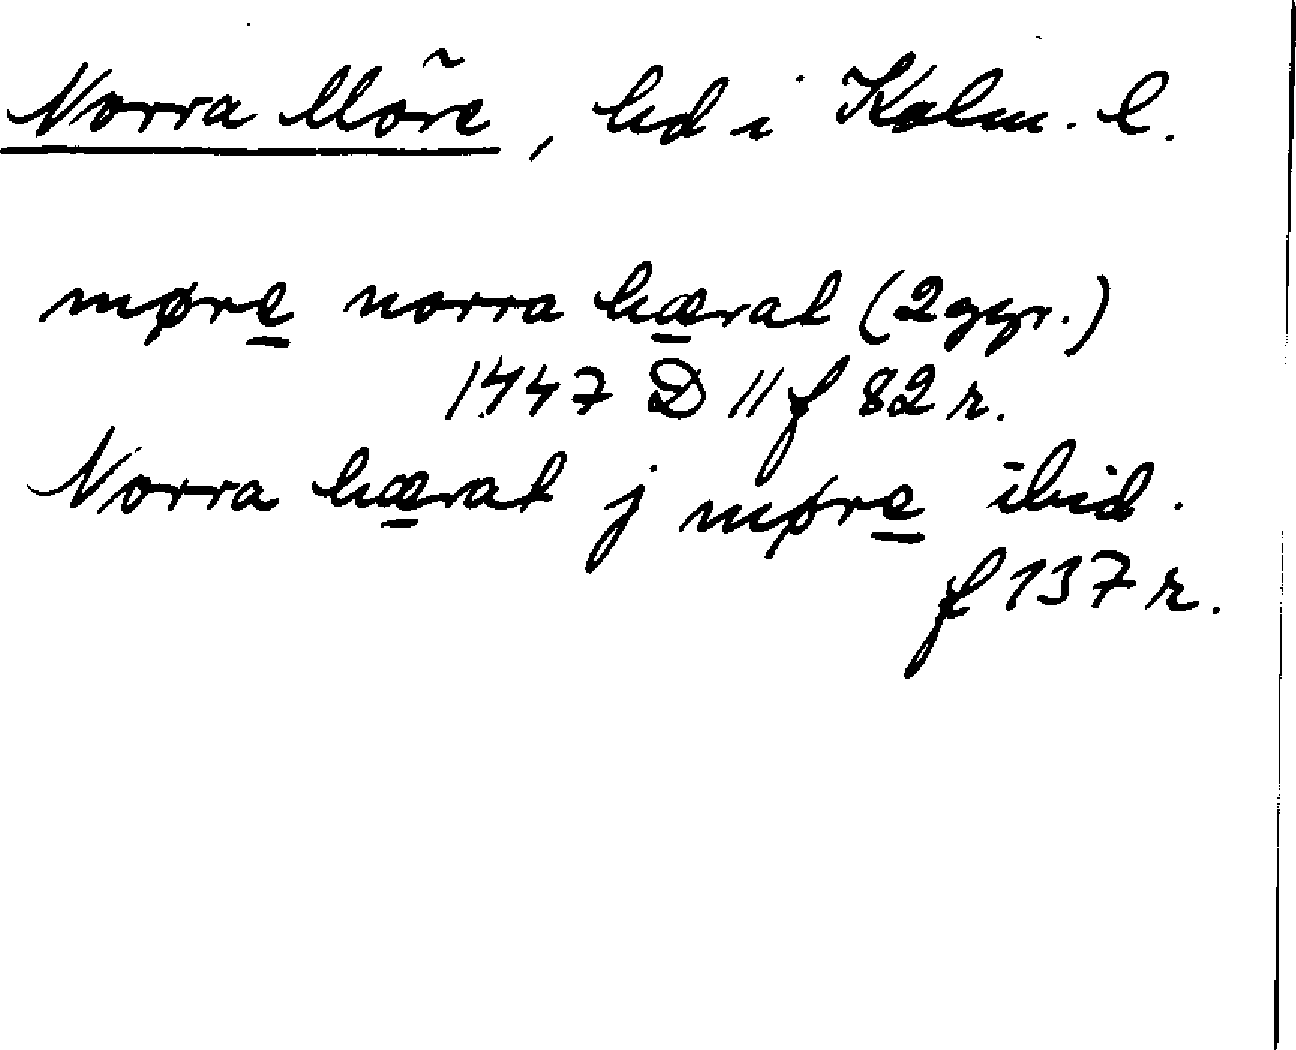 Norra Möre, hd i Kalm. l.
møre norra hærat (2 ggr.)
1447 D 11 f 82 r.
Norra hærat j møre ibid.
f 137 r.